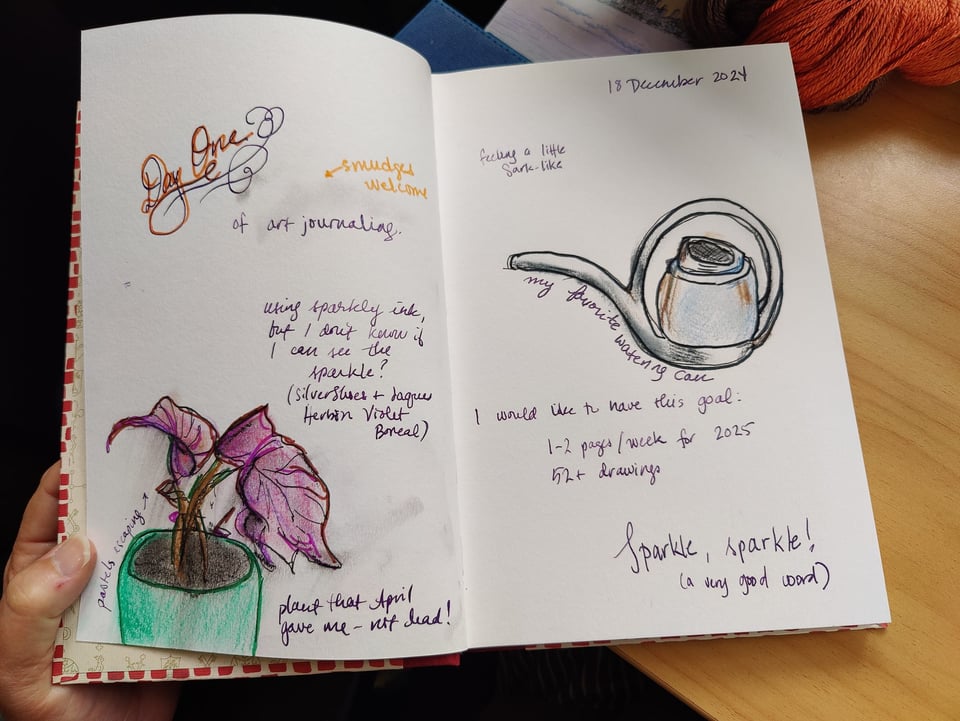 Day One
smudges
welcome
of art journaling.
using sparkly ink,
but I don't know if
I can see the
sparkle?
(silver shoes + Jaques
Herbin Violet
Boreal)
pastels escaping
plant that April
gave me - not dead!
18 December 2024
feeling a little
Sark-like
my favorite watering can
I would like to have this goal:
1-2 pages/week for 2025
52+ drawings
Sparkle, sparkle!
(a very good word)